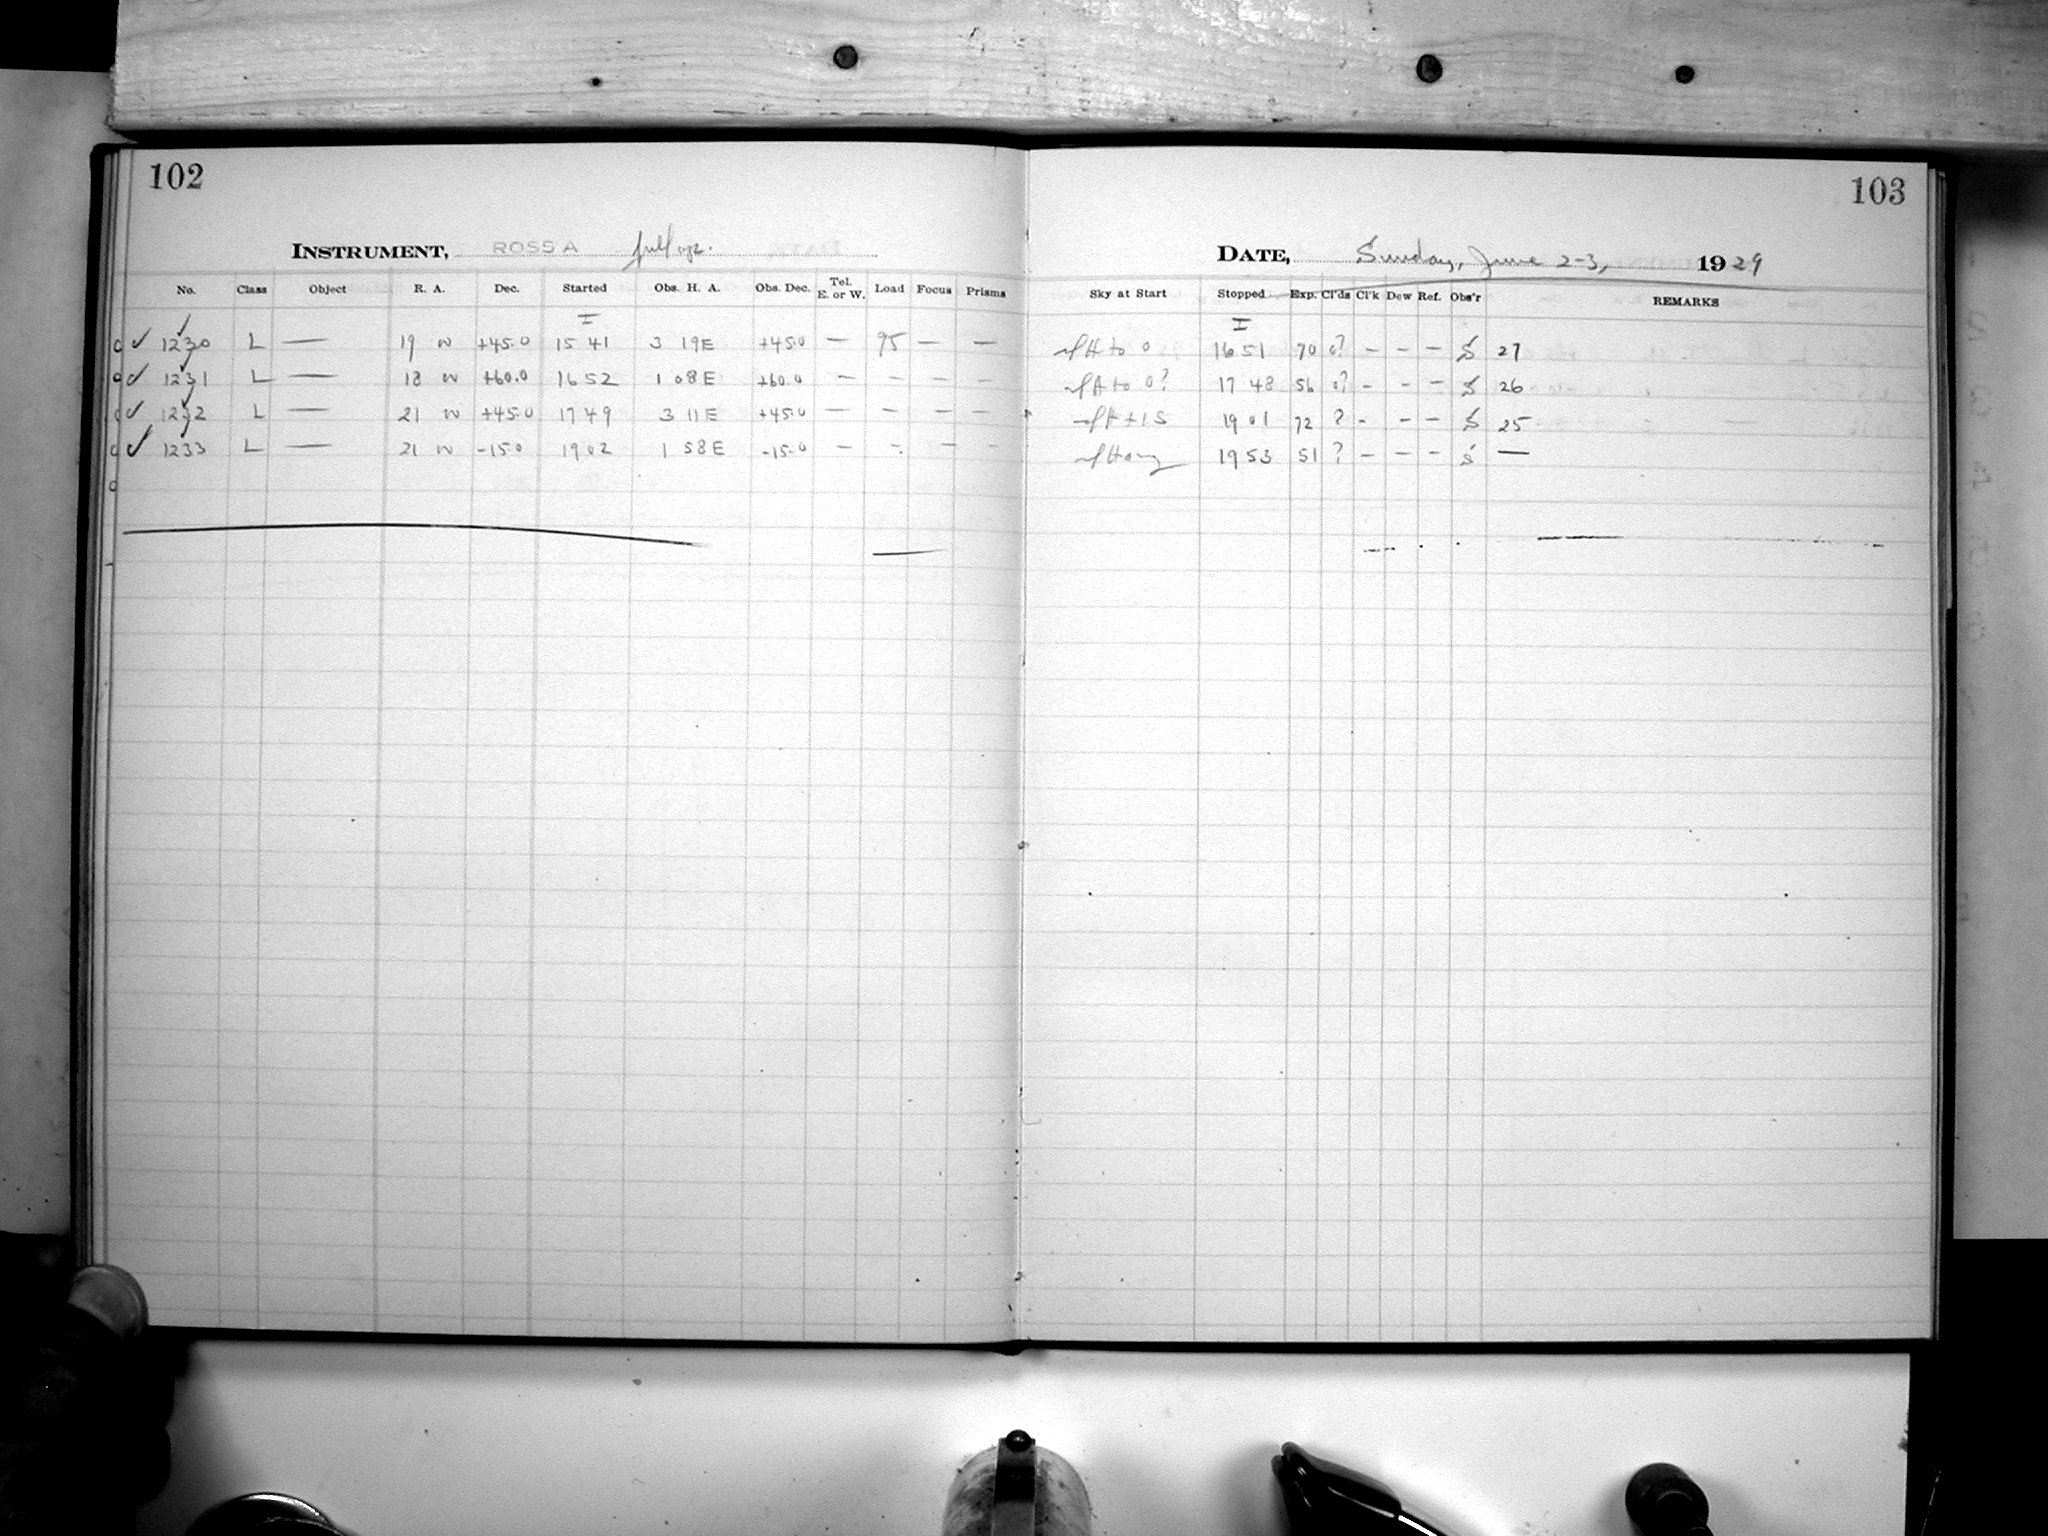 102
INSTRUMENT, ROSS A full ap.
No. Class Object R. A. Dec. Started Obs. H. A. Obs. Dec. Tel. E. or W. Load Focus Prisms
I
✓ 1230 L — 19 w +45.0 15 41 3 19E +45.0 — 95 — —
✓ 1231 L — 18 w +60.0 16 52 1 08E +60.0 — — — —
✓ 1232 L — 21 w +45.0 17 49 3 11E +45.0 — — — —
✓ 1233 L — 21 w -15.0 19 02 1 58E -15.0 — - — -
103
DATE, Sunday, June 2-3, 1929
Sky at Start Stopped Exp. Cl'ds Cl'k Dew Ref. Obs'r REMARKS
I
to 0 16 51 70 0? — — — S 27
to 0? 17 48 56 0? - — — S 26
19 01 72 ? - — — S 25
19 53 51 ? — — — S —